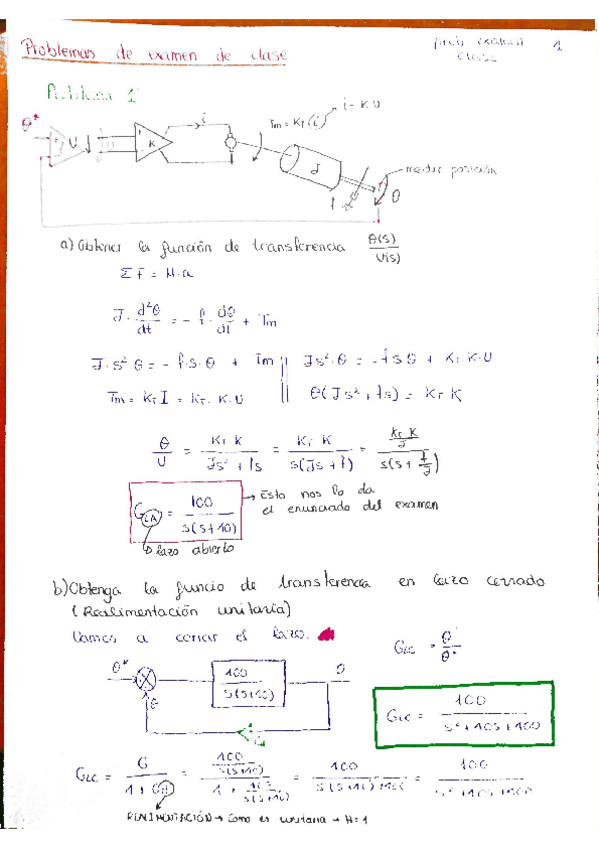 Problemas de examen de clase
prob examen clase 1
Problema 1
θ* U K i Tm = KT(i) i = K·U J f θ medir posición
a) Obtener la función de transferencia θ(s)/U(s)
Σ F = M·a
J · d²θ/dt = - f · dθ/dt + Tm
J·s² θ = - f·s·θ + Tm || Js²·θ = - f s θ + KT K·U
Tm = KT I = KT· K·U || θ(Js² + fs) = KT K
θ/U = KT K/(Js² + fs) = KT K/(s(Js + f)) = (KT K/J)/(s(s + f/J))
GLA = 100/(s(s+10)) → Esto nos lo da el enunciado del examen
↳ lazo abierto
b) Obtenga la funcio de transferencia en lazo cerrado
(Realimentación unitaria)
Vamos a cerrar el lazo.
GLC = θ/θ*
θ* 100/(s(s+10)) θ
θ
GLC = 100/(s²+10s+100)
GLC = G/(1 + GH) = (100/(s(s+10)))/(1 + 100/(s(s+10))) = 100/(s(s+10)+100) = 100/(s²+10s+100)
REALIMENTACIÓN → Como es unitaria → H=1